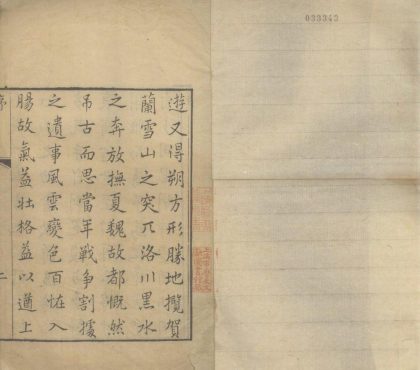 遊又得朔方形勝地攬賀
蘭雪山之突兀洛川黑水
之奔放撫夏魏故都慨然
弔古而思當年戰爭割據
之遺事風雲變色百怪入
腸故氣益壯格益以遒上
序
二
033343